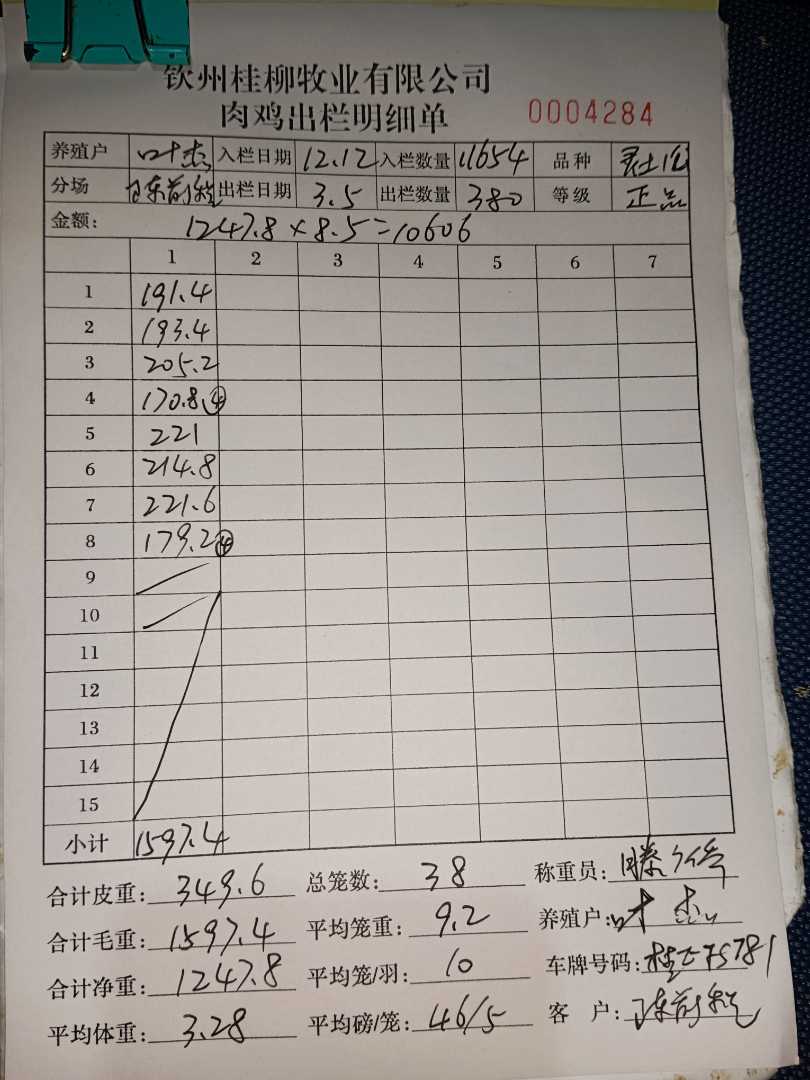 钦州桂柳牧业有限公司
肉鸡出栏明细单 0004284
养殖户 叶杰 入栏日期 12.12 入栏数量 11654 品种
分场 出栏日期 3.5 出栏数量 380 等级 正品
金额: 1247.8×8.5=10606
1 2 3 4 5 6 7
1 191.4
2 193.4
3 205.2
4 170.8 ④
5 221
6 214.8
7 221.6
8 179.2 ④
9
10
11
12
13
14
15
小计 1597.4
合计皮重: 349.6 总笼数: 38 称重员:
合计毛重: 1597.4 平均笼重: 9.2 养殖户: 叶杰
合计净重: 1247.8 平均笼/羽: 10 车牌号码:
平均体重: 3.28 平均磅/笼: 46/5 客户: